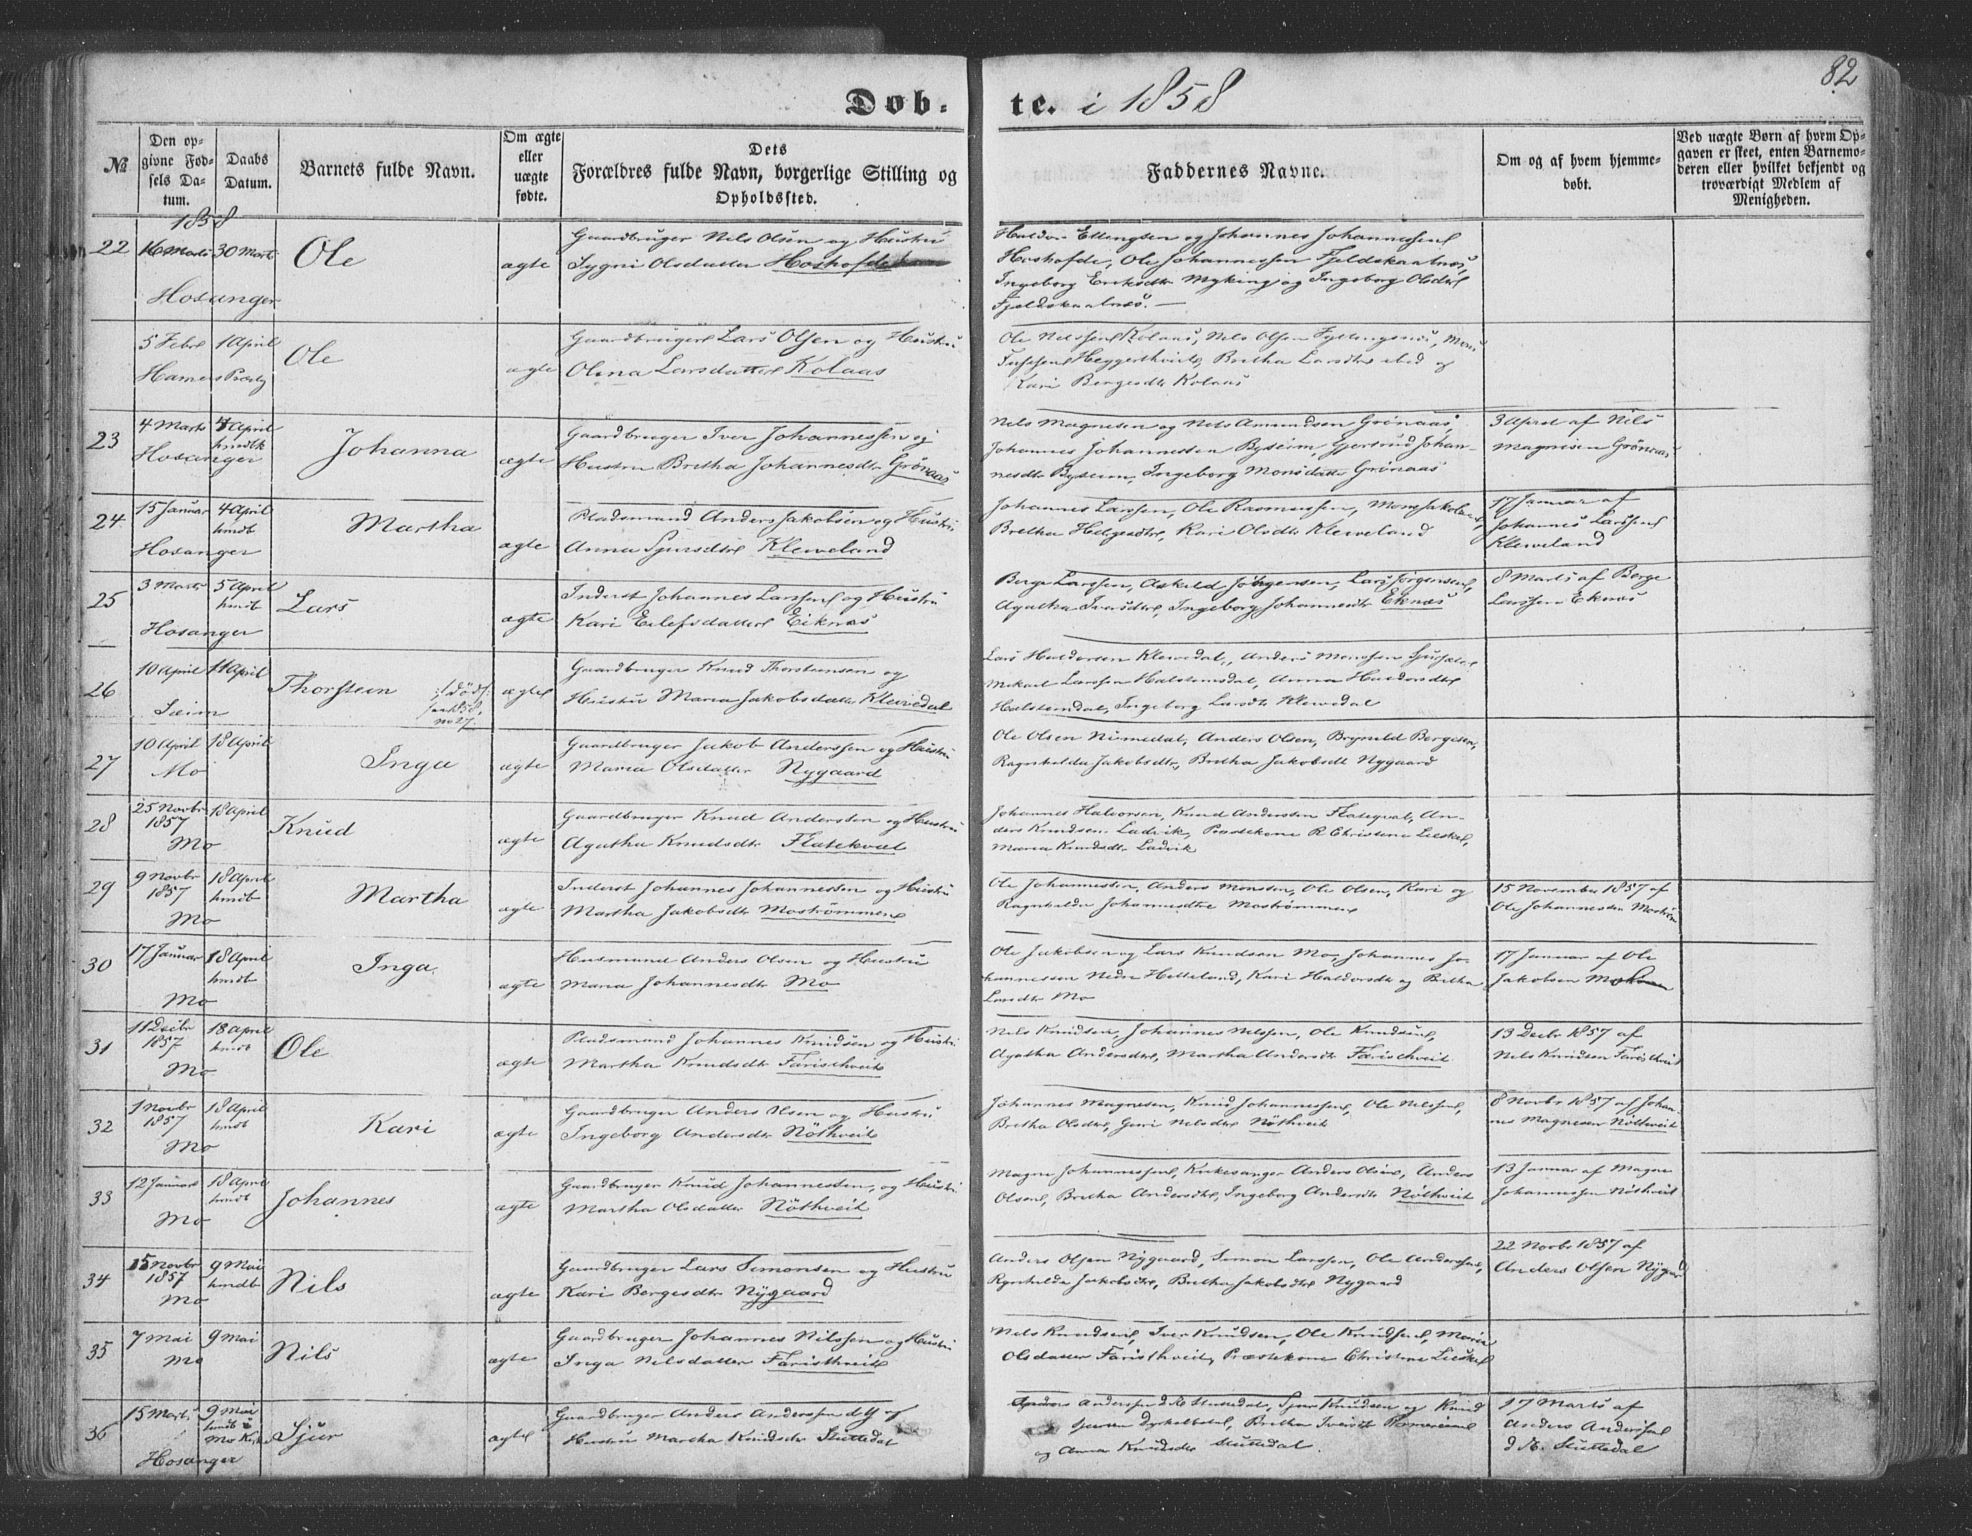 82
Döb- te. i 1858
№
Den op-
givne Fød-
sels Da-
tum.
Daabs
Datum.
Barnets fulde Navn.
Om ægte
eller
uægte
fødte.
Dets
Forældres fulde Navn, borgerlige Stilling og
Opholdssted.
Faddernes Navne.
Om og af hvem hjemme-
døbt.
Ved uægte Børn af hvem Op-
gaven er skeet, enten Barnemo-
deren eller hvilket bekjendt og
troværdigt Medlem af
Menigheden.
1858
22 16 Marts 30 Marts Ole
Hosanger
ægte
Gaardbruger Nils Olsen og Hustru
Sygni Olsdatter Hoshofde
Haldor Ellengsen og Johannes Johannessen
Hoshofde, Ole Johannessen Fjeldskaalnæs,
Ingeborg Eriksdtr Myking og Ingeborg Olsdtr
Fjeldskaalnæs.
5 Febr 1 April Ole
Hamers Præstg
ægte
Gaardbruger Lars Olsen og Hustru
Olena Larsdatter Kolaas
Ole Nilssen Kolaas, Nils Olsen Mons
Heggerthveit, Britha Larsdtr ibid og
Kari Bergesdtr Kolaas
23 4 Marts 4 April hmdbt Johanna
Hosanger
ægte
Gaardbruger Iver Johannessen og
Hustru Britha Johannesdtr Grönaas
Nils Magnesen og Nils Amundsen Grönaas,
Johannes Johannessen Byseim, Gjertrud Johan-
nesdtr Byseim, Ingeborg Monsdatter Grönaas
3 April af Nils
Magnesen Grönaas
24 15 Januar 4 April hmdb Martha
Hosanger
ægte
Pladsmand Anders Jakobsen og Hustru
Anna Sjursdtr Kleiveland
Johannes Larssen, Ole Rasmussen, Mons Jakobsen,
Britha Helgesdtr, Kari Olsdtr Kleiveland
17 Januar af
Johannes Larssen
Kleiveland
25 3 Marts 5 April hmdb Lars
Hosanger
ægte
Inderst Johannes Larssen og Hustru
Kari Eilefsdatter Eiknæs
Berge Larssen, Askild Jörgensen, Lars Jörgensen,
Agatha Iversdtr, Ingeborg Johannesdtr Eknæs
8 Marts af Berge
Larssen Eknæs
26 10 April 11 April Thorstein
Seim
ægte
Gaardbruger Knud Thorsteinsen og
Hustru Maria Jakobsdatter Kleivedal
Lars Haldorsen Kleivedal, Anders Monssen
Mikael Larssen Halstensdal, Anna Haldorsdtr
Halstensdal, Ingeborg Larsdtr Kleivedal
27 10 April 18 April Inga
Mo
ægte
Gaardbruger Jakob Anderssen og Hustru
Maria Olsdatter Nygaard
Ole Olsen Nimedal, Anders Olsen, Brynild Bergesen,
Ragnhilda Jakobsdtr, Britha Jakobsdt Nygaard
28 25 Novbr 1857 18 April Knud
Mo
ægte
Gaardbruger Knud Andersen og Hustru
Agatha Knudsdtr Flatekval
Johannes Halvorsen, Knud Andersen Flatekval, An-
ders Knudsen Ladvik, Præstekone R Christine Lieskel,
Maria Knudsdtr Ladvik
29 9 Novbr 1857 18 April hmdb Martha
Mo
ægte
Inderst Johannes Johannessen og Hustru
Martha Jakobsdtr Moströmmen
Ole Johannessen, Anders Monssen, Ole Olsen, Kari og
Ragnhilda Johannesdtre Moströmmen
15 November 1857 af
Ole Johannessen Moström
30 17 Januar 18 April hmdb Inga
Mo
ægte
Husmand Anders Olsen og Hustru
Maria Johannesdtr Mo
Ole Jakobsen og Lars Knudsen Mo, Johannes Jo-
hannessen Nedre Helleland, Kari Haldorsdtr og Britha
Larsdtr Mo
17 Januar af Ole
Jakobsen Mo
31 11 Decbr 1857 18 April hmdb Ole
Mo
ægte
Pladsmand Johannes Knudsen og Hustru
Martha Knudsdtr Faristhveit
Nils Knudsen, Johannes Nilssen, Ole Knudsen,
Agatha Andersdtr, Martha Andersdtr Faristhveit
13 Decbr 1857 af
Nils Knudsen Faristhveit
32 1 Novbr 1857 18 April hmdb Kari
Mo
ægte
Gaardbruger Anders Olsen og Hustru
Ingeborg Andersdtr Nöthveit
Johannes Magnesen, Knud Johannessen, Ole Nilssen,
Britha Olsdtr, Guri Nilsdtr Nöthveit
8 Novbr 1857 af Johan-
nes Magnesen Nöthveit
33 12 Januar 18 April hmdb Johannes
Mo
ægte
Gaardbruger Knud Johannessen, og Hustru
Martha Olsdatter Nöthveit
Magne Johannessen, Kirkesanger Anders Olsen, Anders
Olsen, Britha Andersdtr, Ingeborg Andersdtr Nöthveit
13 Januar af Magne
Johannessen Nöthveit
34 15 Novbr 1857 9 Mai hmdb Nils
Mo
ægte
Gaardbruger Lars Simonsen og Hustru
Kari Bergesdtr Nygaard
Anders Olsen Nygaard, Simon Larssen, Ole Anderssen,
Rgnhilda Jakobsdtr, Britha Jakobsdtr Nygaard
22 Novbr 1857 af
Anders Olsen Nygaard
35 7 Mai 9 Mai Nils
Mo
ægte
Gaardbruger Johannes Nilssen og Hustru
Inga Nilsdatter Faristhveit
Nils Knudsen, Iver Knudsen, Ole Knudsen, Maria
Olsdatter Faristhveit, Præstekone Christine Lieskel
36 15 Marts 9 Mai hmdb i Mo Kirke Sjur
Hosanger
ægte
Gaardbruger Anders Anderssen d.y og
Hustru Martha Knudsdtr Sluttedal
Anders Anderssen d.Æ. Sluttedal, Sjur Knudsen og Knud
Britha Iversdtr
og Anna Knudsdtr Sluttedal.
17 Marts af
Anders Anderssen
d.Æ. Sluttedal